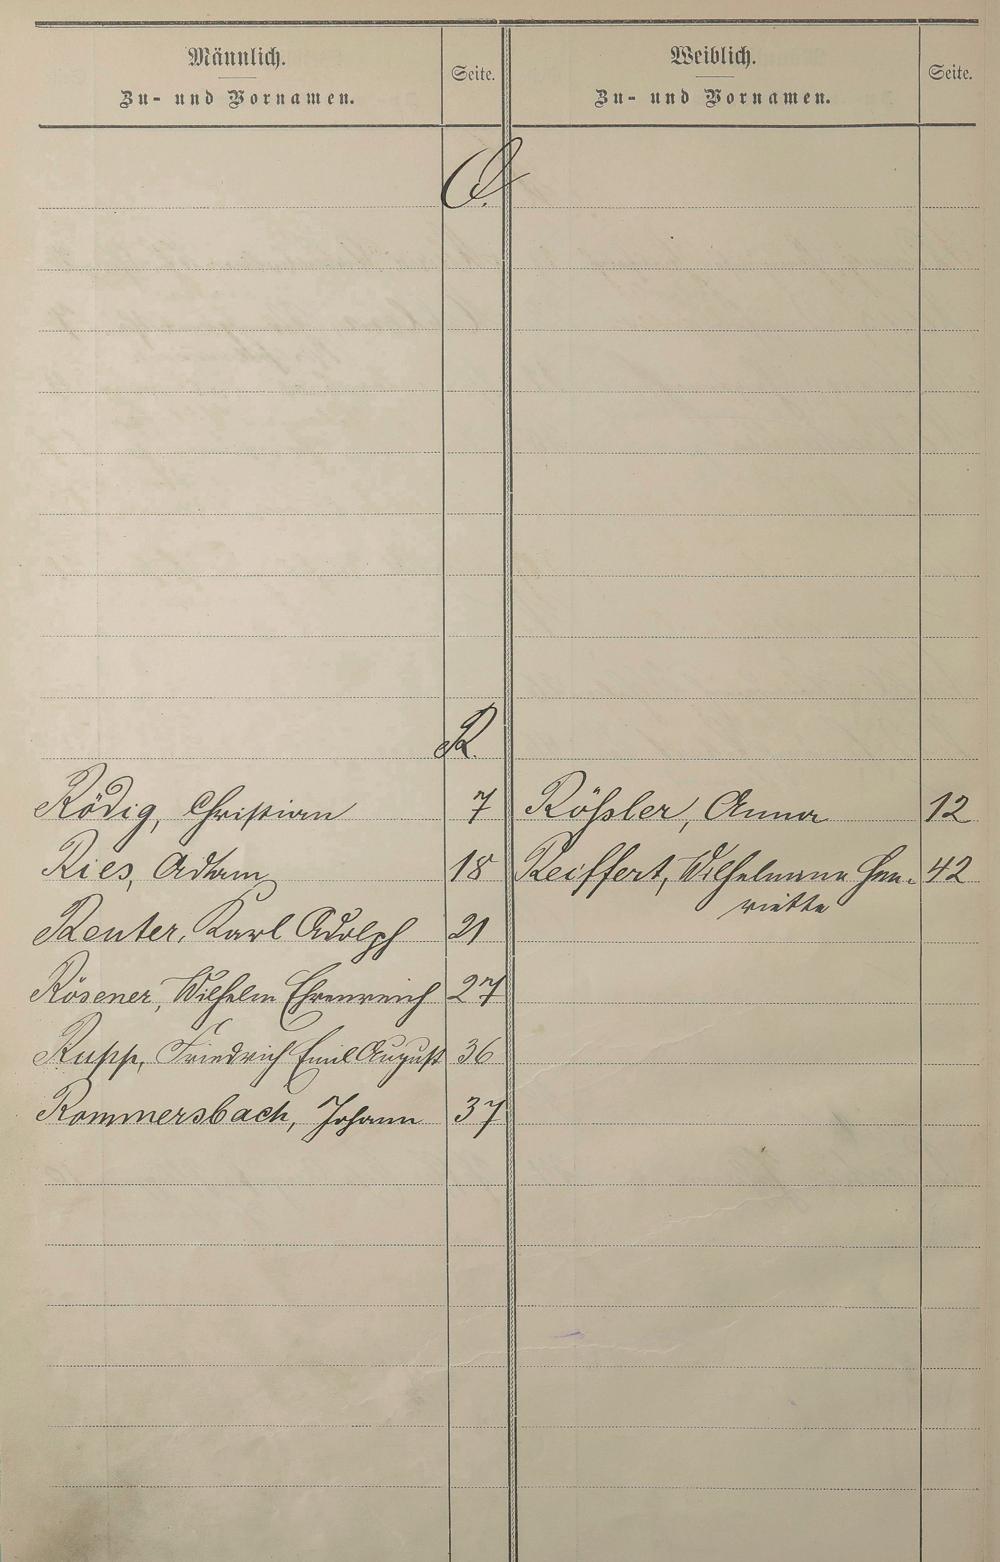 Männlich.
Zu- und Vornamen.
Seite.
Weiblich.
Zu- und Vornamen.
Seite.
Q.
R.
Rödig, Christian 7 Rößler, Anna 12
Ries, Adham 18 Reiffert, Wilhelmine Hen- 42
riette
Reuter, Karl Adolph 21
Rösener, Wilhelm Ehrenreich 27
Rupp, Friedrich Emil August 36
Rommersbach, Johann 37